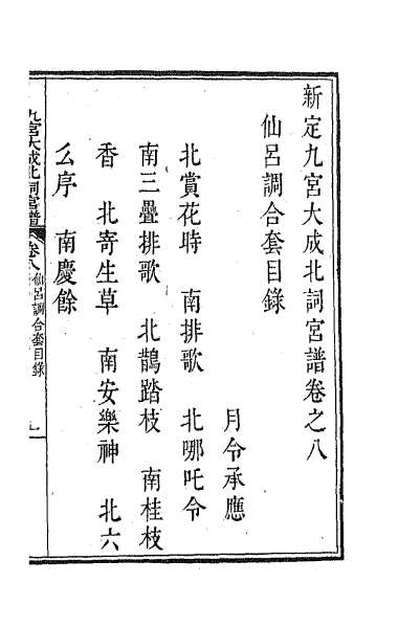 新定九宮大成北詞宮譜卷之八
仙呂調合套目錄
月令承應
北賞花時 南排歌 北哪吒令
南三疊排歌 北鵲踏枝 南桂枝
香 北寄生草 南安樂神 北六
幺序 南慶餘
九宮大成北詞宮譜 卷八 仙呂調合套目錄